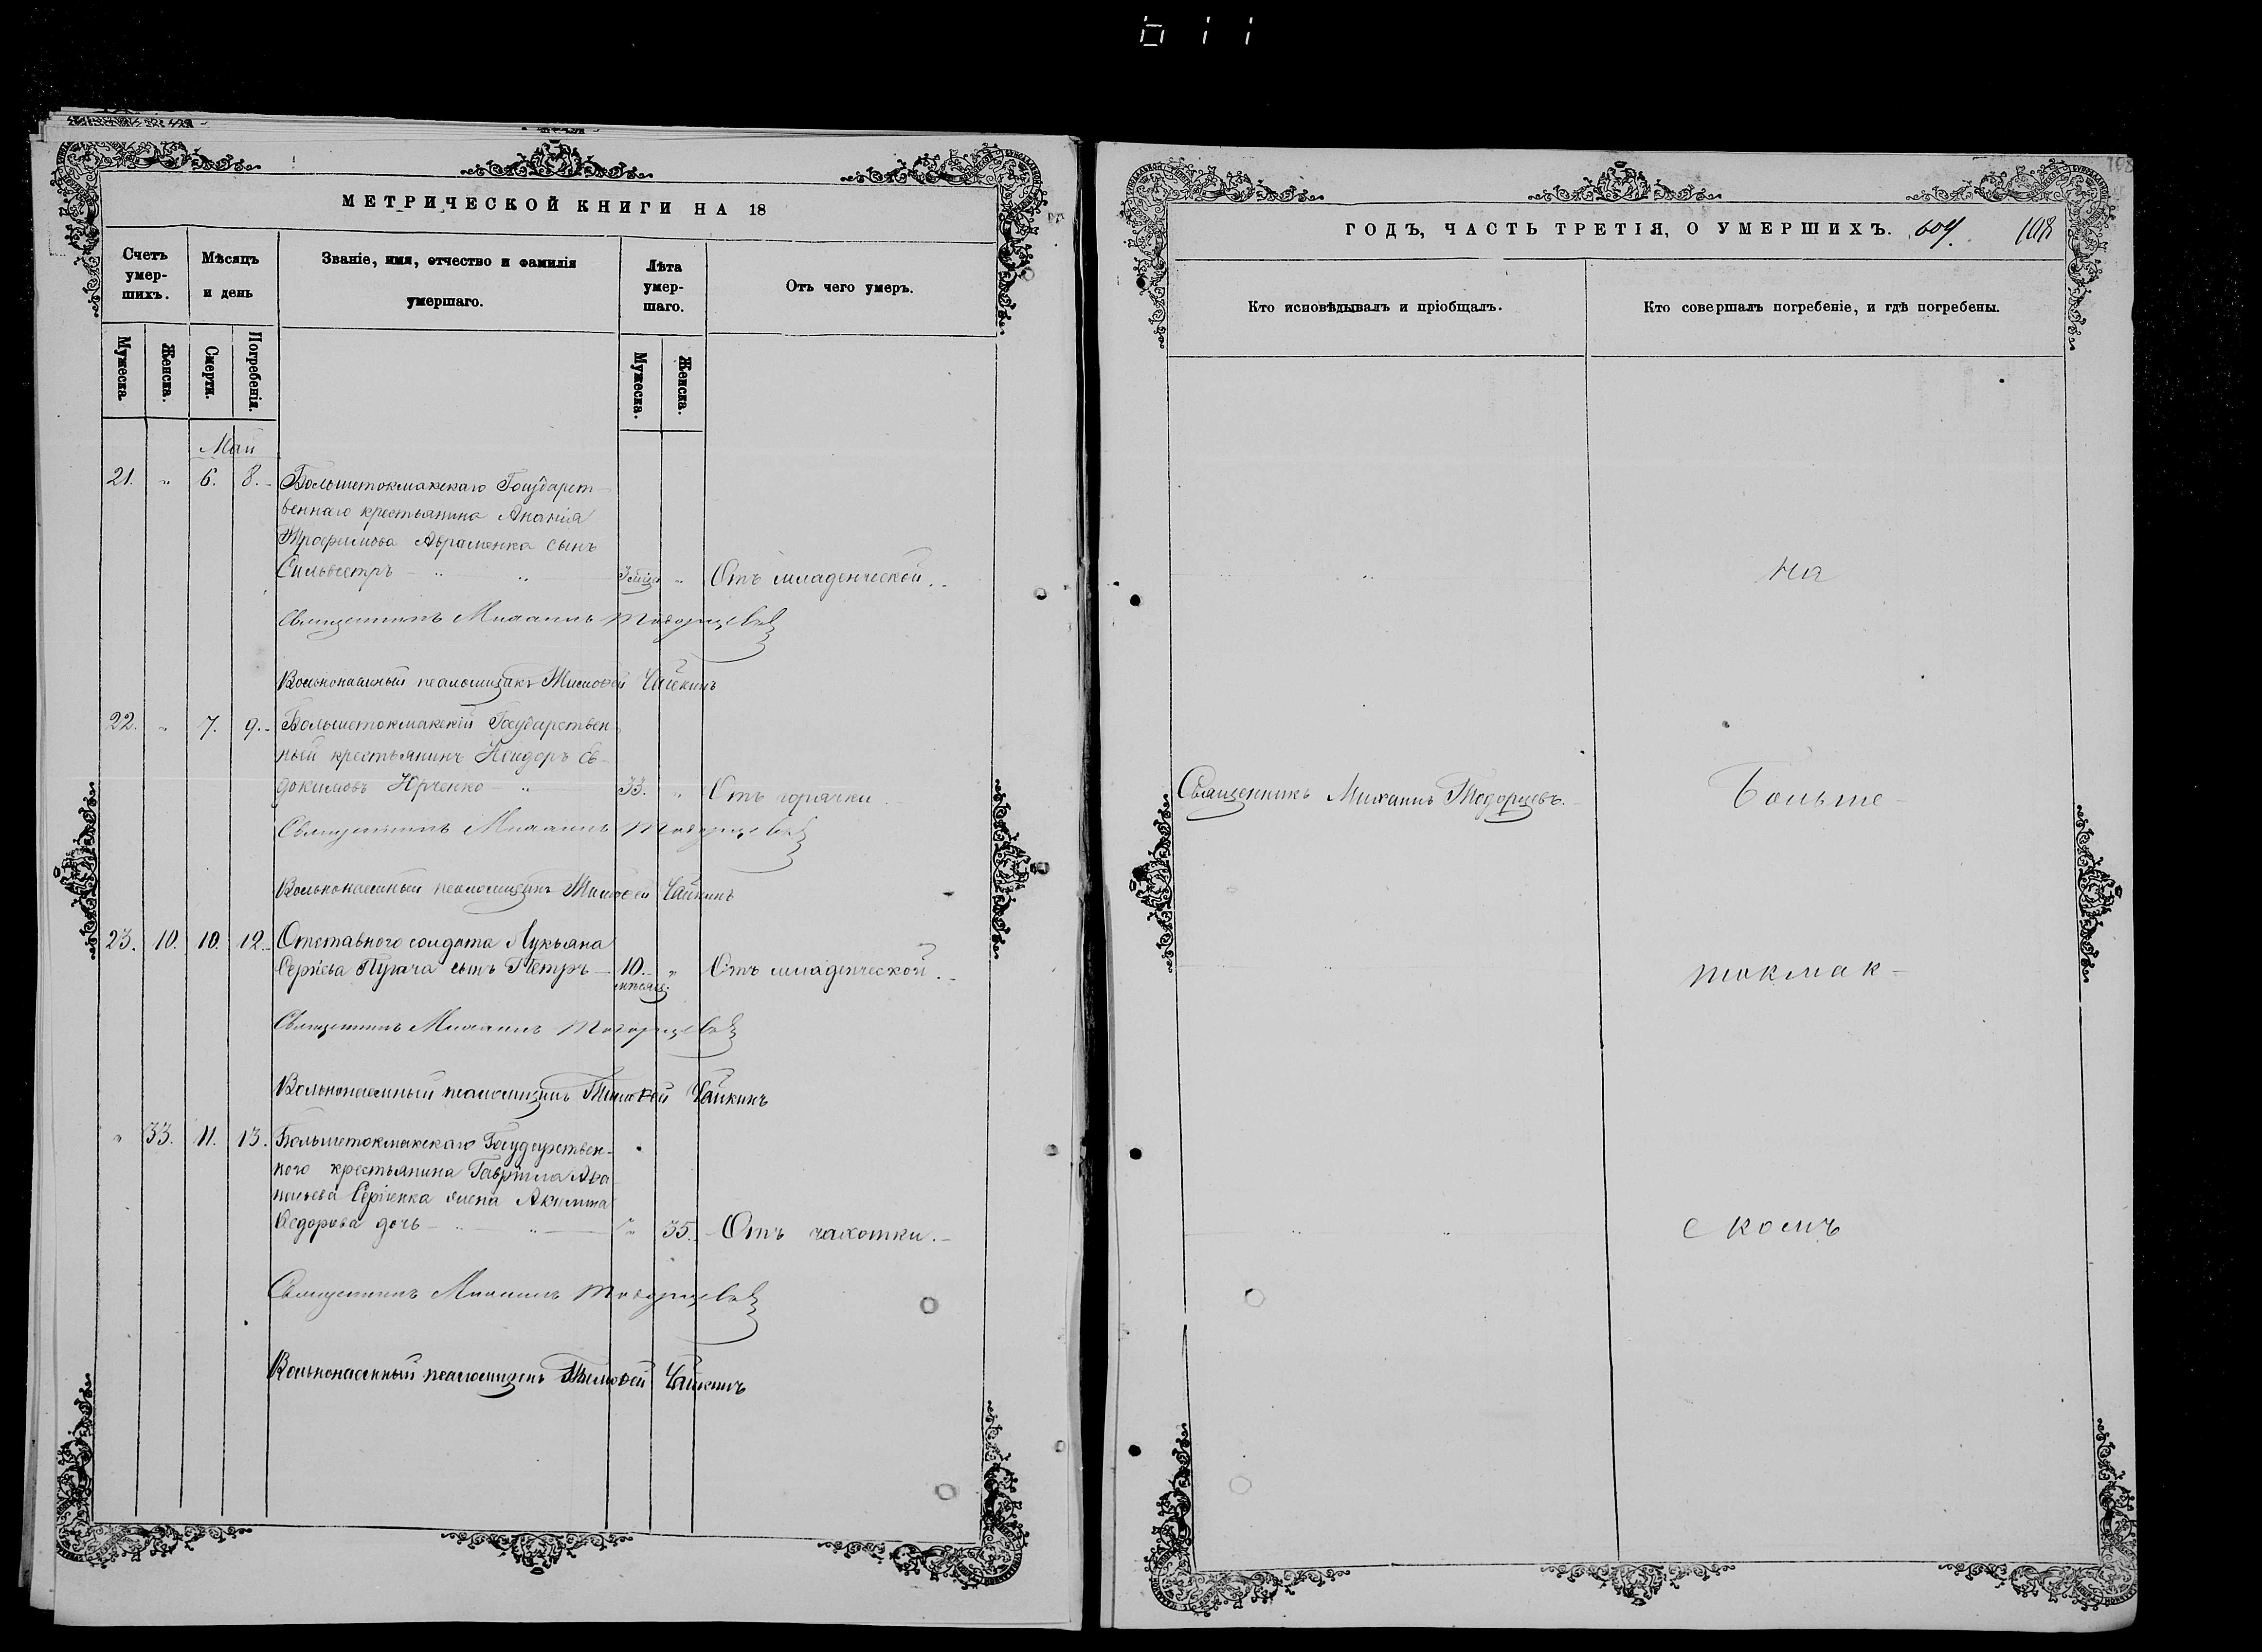 МЕТРИЧЕСКОЙ КНИГИ НА 18
Счетъ умер-шихъ.
Мѣсяцъ и день
Званіе, имя, отчество и фамилія умершаго.
Лѣта умер-шаго.
Отъ чего умеръ.
Мужеска.
Женска.
Смерти.
Погребенія.
Мужеска.
Женска.
Май
21. " 6. 8. Большетокмакскаго Государст-
веннаго крестьянина Ананія
Трофимова Авраменка сынъ
Сильвестръ " Отъ младенческой.
Священникъ Михаилъ Тодорцевъ
Вольнонаемный псаломщикъ Тимоѳей Чайкинъ
22. " 7. 9. Большетокмакскій Государствен
ный крестьянинъ Исидоръ Ев-
докимовъ Юрченко 33. " Отъ горячки.
Священникъ Михаилъ Тодорцевъ
Вольнонаемный псаломщикъ Тимоѳей Чайкинъ
23. 10. 10. 12. Отставного солдата Лукьяна
Сергѣева Пугача сынъ Петръ 10. " Отъ младенческой.
мѣсяц.
Священникъ Михаилъ Тодорцевъ
Вольнонаемный псаломщикъ Тимоѳей Чайкинъ
" 33. 11. 13. Большетокмакскаго Государствен-
ного крестьянина Гавріила Аѳа
насьева Сергіенка жена Акилина
Ѳедорова дочь " 35. Отъ чахотки.
Священникъ Михаилъ Тодорцевъ
Вольнонаемный псаломщикъ Тимоѳей Чайкинъ
ГОДЪ, ЧАСТЬ ТРЕТІЯ, О УМЕРШИХЪ. 609. 108
Кто исповѣдывалъ и пріобщалъ.
Кто совершалъ погребеніе, и гдѣ погребены.
На
Священникъ Михаилъ Тодорцевъ.
Больше-
токмак-
скомъ